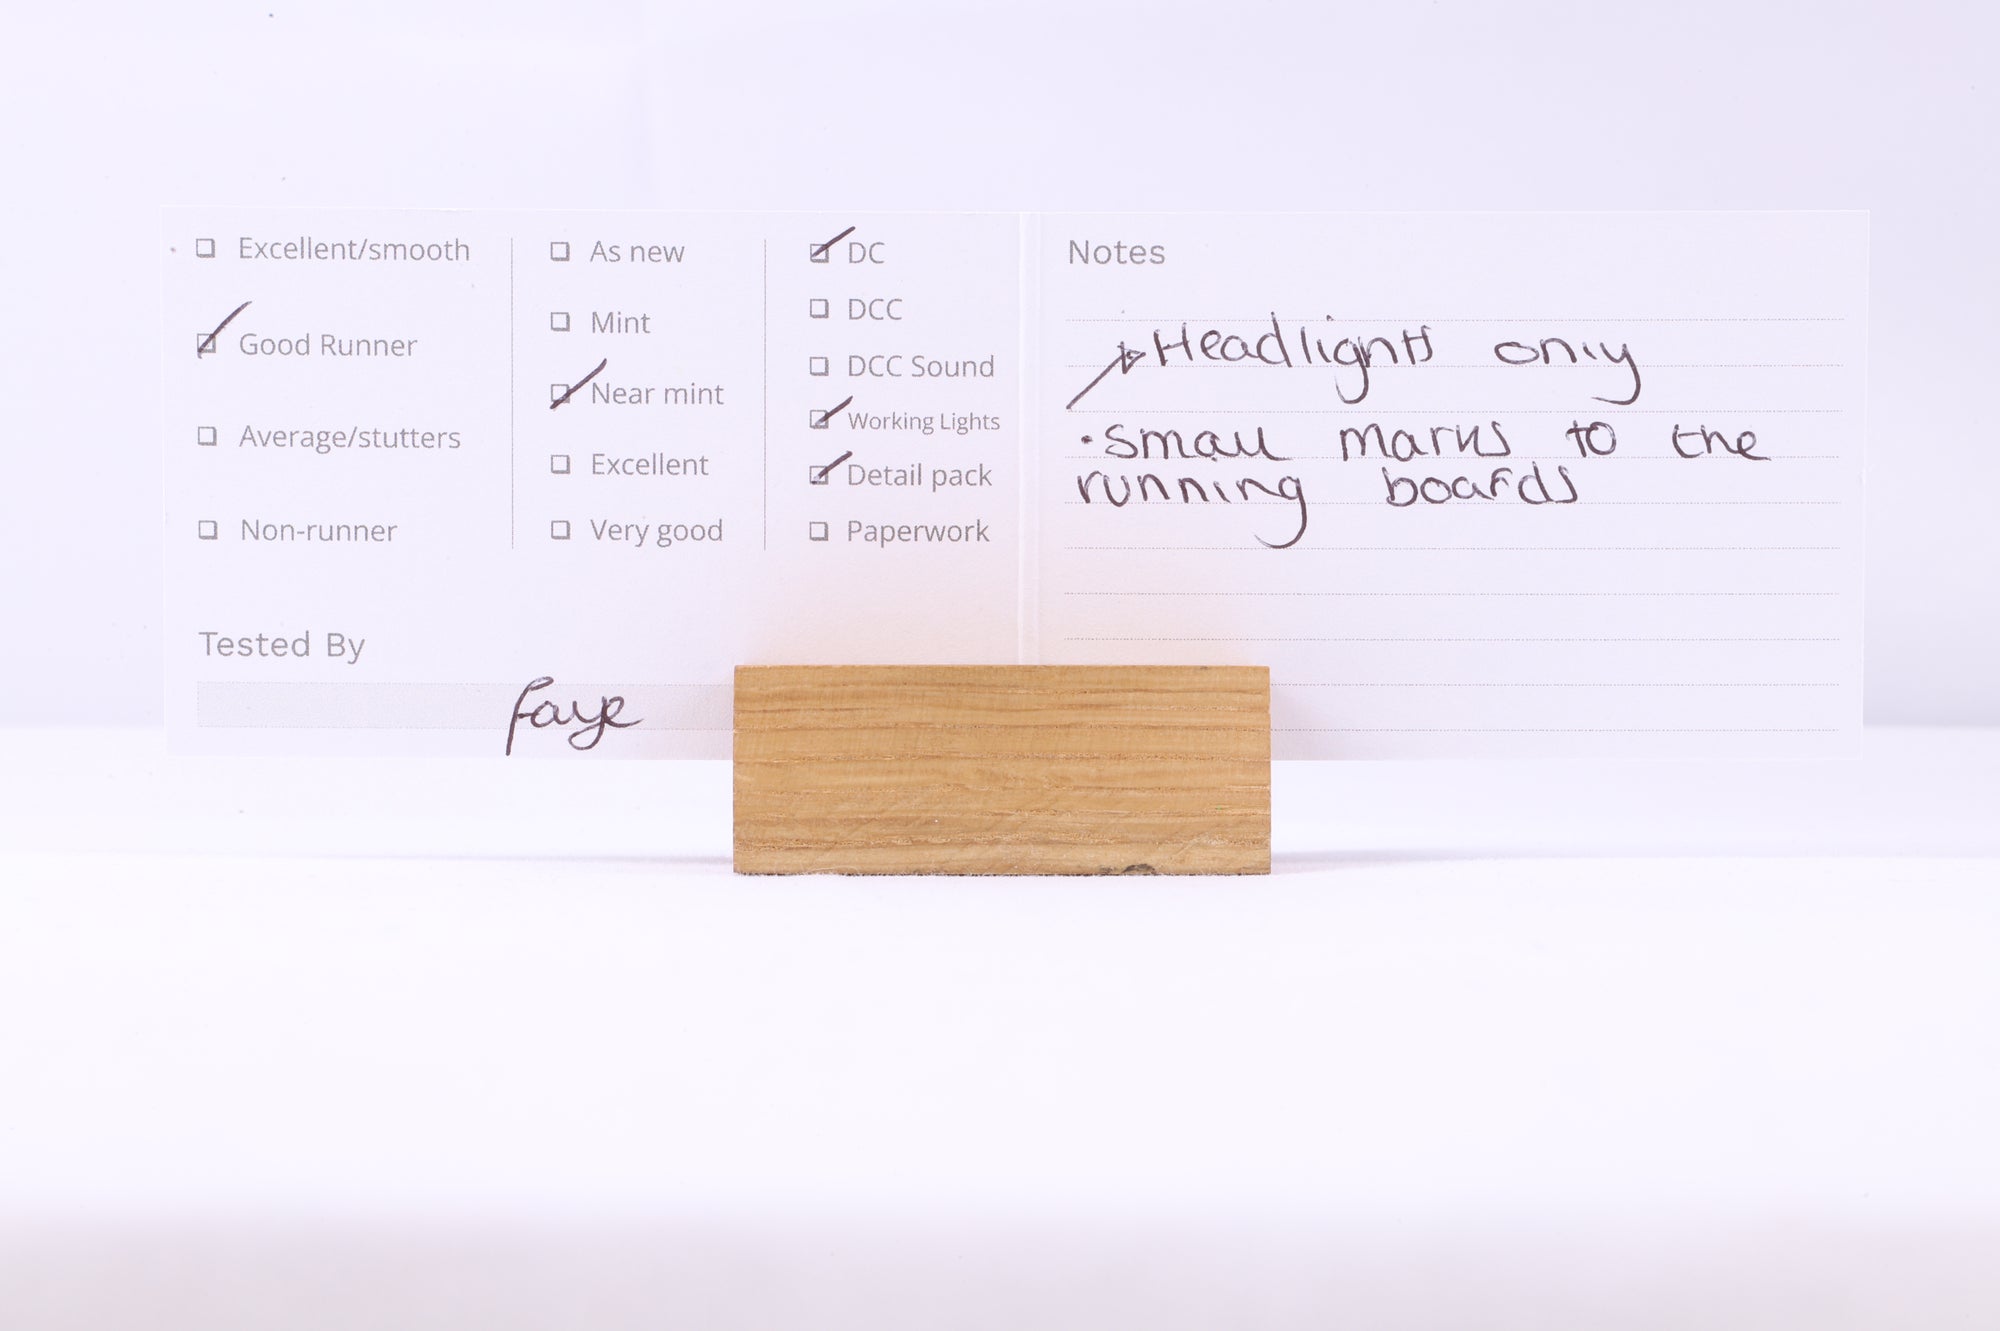 Excellent/smooth
Good Runner
Average/stutters
Non-runner
As new
Mint
Near mint
Excellent
Very good
DC
DCC
DCC Sound
Working Lights
Detail pack
Paperwork
Tested By
Faye
Notes
Headlights only
• Small marks to the
running boards